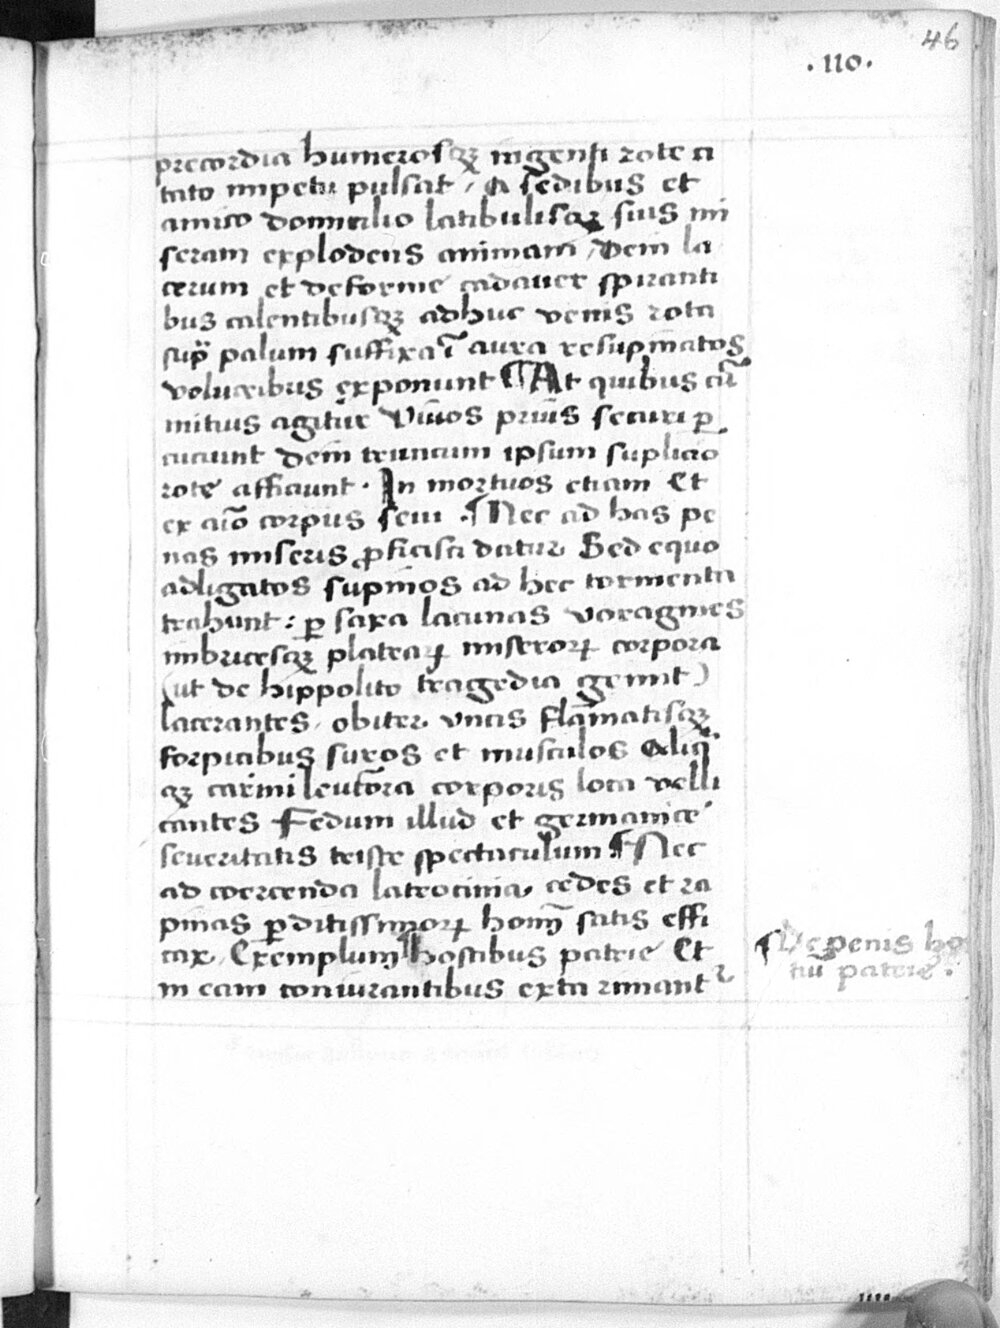 46
.110.
precordia humerosqꝫ ingenti rote ci
tato impetu pulsat, a sedibus et
amico domicilio latibulisqꝫ suis mi
seram explodens animam, Dein la
cerum et deforme cadauer spiranti
bus calentibusqꝫ adhuc venis rota
suꝑ palum suffixa ī aura resupinatos
volucribus exponunt ¶ At quibus cū
mitius agitur Viuos prius securi ꝑ
cuciunt dein truncum ipsum suplicio
rote afficiunt. In mortuos etiam Et
ex aīo corpus seui. ¶ Nec ad has pe
nas miseris ꝓficisci datur Sed equo
adligatos supinos ad hec tormenta
trahunt: ꝑ saxa lacunas voragines
imbricesqꝫ plateaꝝ miseroꝝ corpora
(ut de hippolito tragedia gemit)
lacerantes, obiter vncis flāmatisqꝫ
forpicibus suros et musculos
qꝫ corporis loca velli
cantes Fedum illud et germanice
seueritatis triste spectaculum ¶ Nec
ad coercenda latrocinia, cedes et ra
pinas ꝑditissimoꝝ homī satis effi
cax, Exemplum ¶ hostibus patrie Et
in eam coniurantibus exta rimantr
¶ De penis ho
tiū patrie.